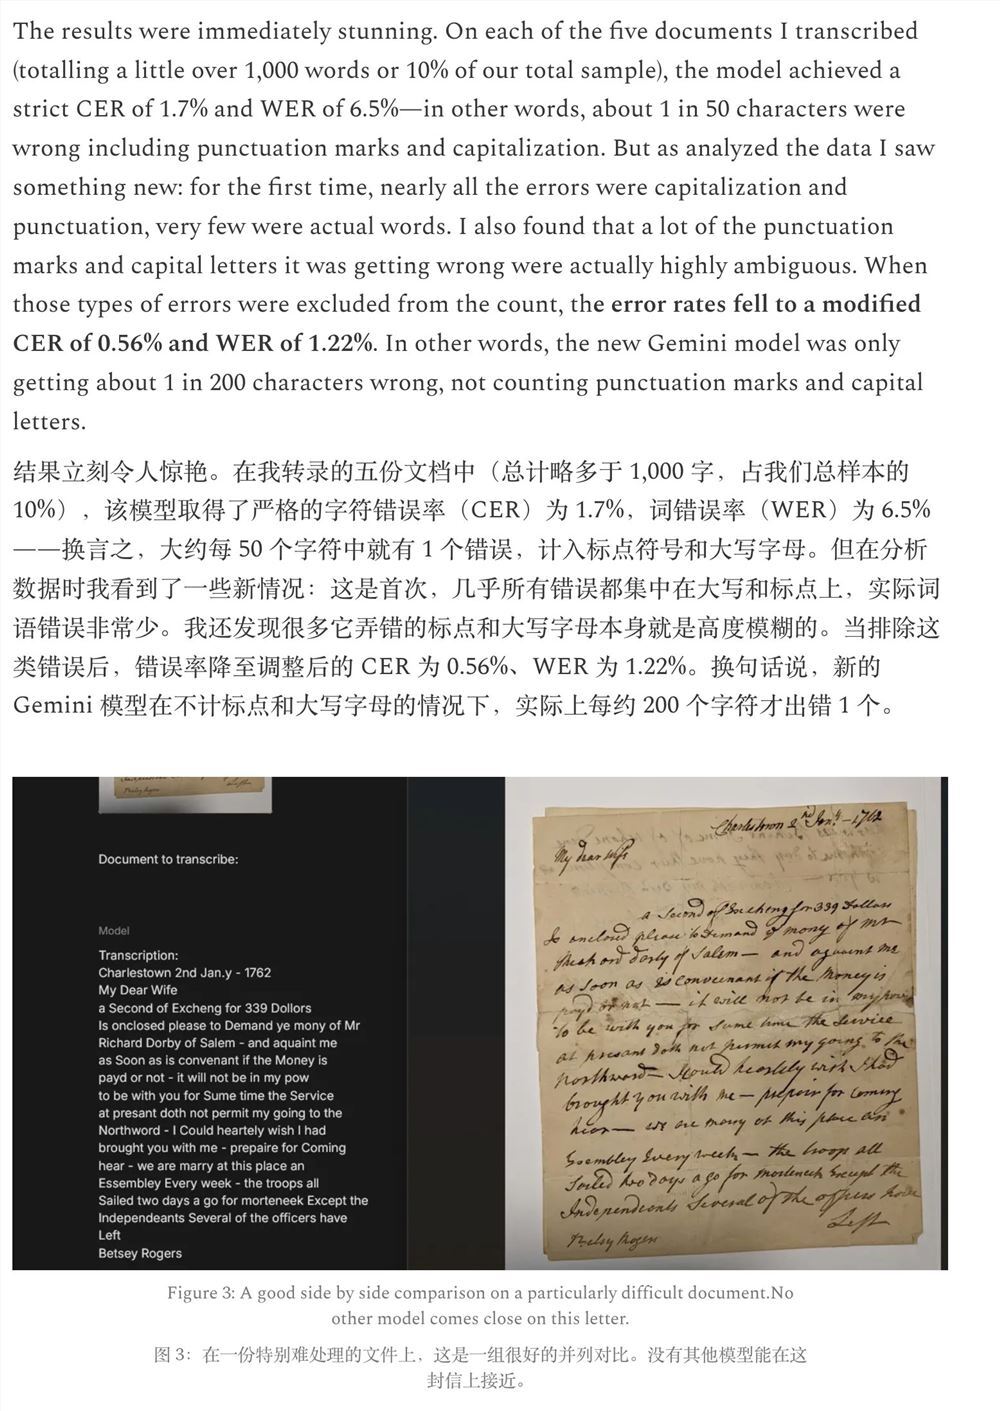 The results were immediately stunning. On each of the five documents I transcribed
(totalling a little over 1,000 words or 10% of our total sample), the model achieved a
strict CER of 1.7% and WER of 6.5%—in other words, about 1 in 50 characters were
wrong including punctuation marks and capitalization. But as analyzed the data I saw
something new: for the first time, nearly all the errors were capitalization and
punctuation, very few were actual words. I also found that a lot of the punctuation
marks and capital letters it was getting wrong were actually highly ambiguous. When
those types of errors were excluded from the count, the error rates fell to a modified
CER of 0.56% and WER of 1.22%. In other words, the new Gemini model was only
getting about 1 in 200 characters wrong, not counting punctuation marks and capital
letters.
结果立刻令人惊艳。在我转录的五份文档中（总计略多于 1,000 字，占我们总样本的
10%），该模型取得了严格的字符错误率（CER）为 1.7%，词错误率（WER）为 6.5%
——换言之，大约每 50 个字符中就有 1 个错误，计入标点符号和大写字母。但在分析
数据时我看到了一些新情况：这是首次，几乎所有错误都集中在大写和标点上，实际词
语错误非常少。我还发现很多它弄错的标点和大写字母本身就是高度模糊的。当排除这
类错误后，错误率降至调整后的 CER 为 0.56%、WER 为 1.22%。换句话说，新的
Gemini 模型在不计标点和大写字母的情况下，实际上每约 200 个字符才出错 1 个。
Document to transcribe:
Model
Transcription:
Charlestown 2nd Jan.y - 1762
My Dear Wife
a Second of Excheng for 339 Dollors
Is onclosed please to Demand ye mony of Mr
Richard Dorby of Salem - and aquaint me
as Soon as is convenant if the Money is
payd or not - it will not be in my pow
to be with you for Sume time the Service
at presant doth not permit my going to the
Northword - I Could heartely wish I had
brought you with me - prepaire for Coming
hear - we are marry at this place an
Essembley Every week - the troops all
Sailed two days a go for morteneek Except the
Independeants Several of the officers have
Left
Betsey Rogers
Charlestown 2nd Jan.y - 1762
My dear wife
a Second of Excheng for 339 Dollors
Is onclosed please to Demand ye mony of Mr
dorby of Salem — and aquaint me
as soon as is convenant if the Money is
payd or not — it will not be in my pow
to be with you for Sume time the Service
at presant doth not permit my going to the
Northword — I Could heartely wish I had
brought you with me — prepair for Coming
hear — we are marry at this place an
Essembley Every week — the troops all
Sailed two days a go for morteneek Except the
Independeants Several of the officers have
Left
Betsy Rogers
Figure 3: A good side by side comparison on a particularly difficult document.No
other model comes close on this letter.
图 3：在一份特别难处理的文件上，这是一组很好的并列对比。没有其他模型能在这
封信上接近。